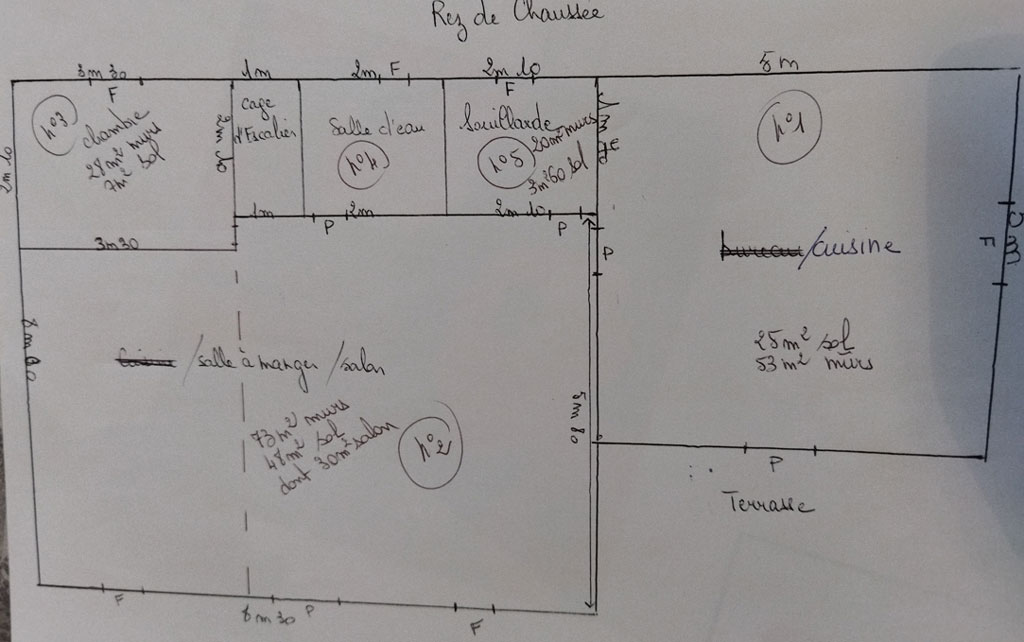 Rez de Chaussee
3m 30
1m
2m
F
2m 10
5m
F
F
n°3
chambre
28m² murs
7m² sol
2m 10
cage
d'Escalier
Salle d'eau
n°4
Souillarde
20m² murs
n°5
3m²60 sol
n°1
1m
2m
2m 10
P
P
P
3m30
F
5m
bureau/cuisine
25m² sol
53m² murs
/salle à manger/salon
73m² murs
48m² sol
dont 30m² salon
n°2
5m 80
P
Terrasse
F
8m 30
P
F